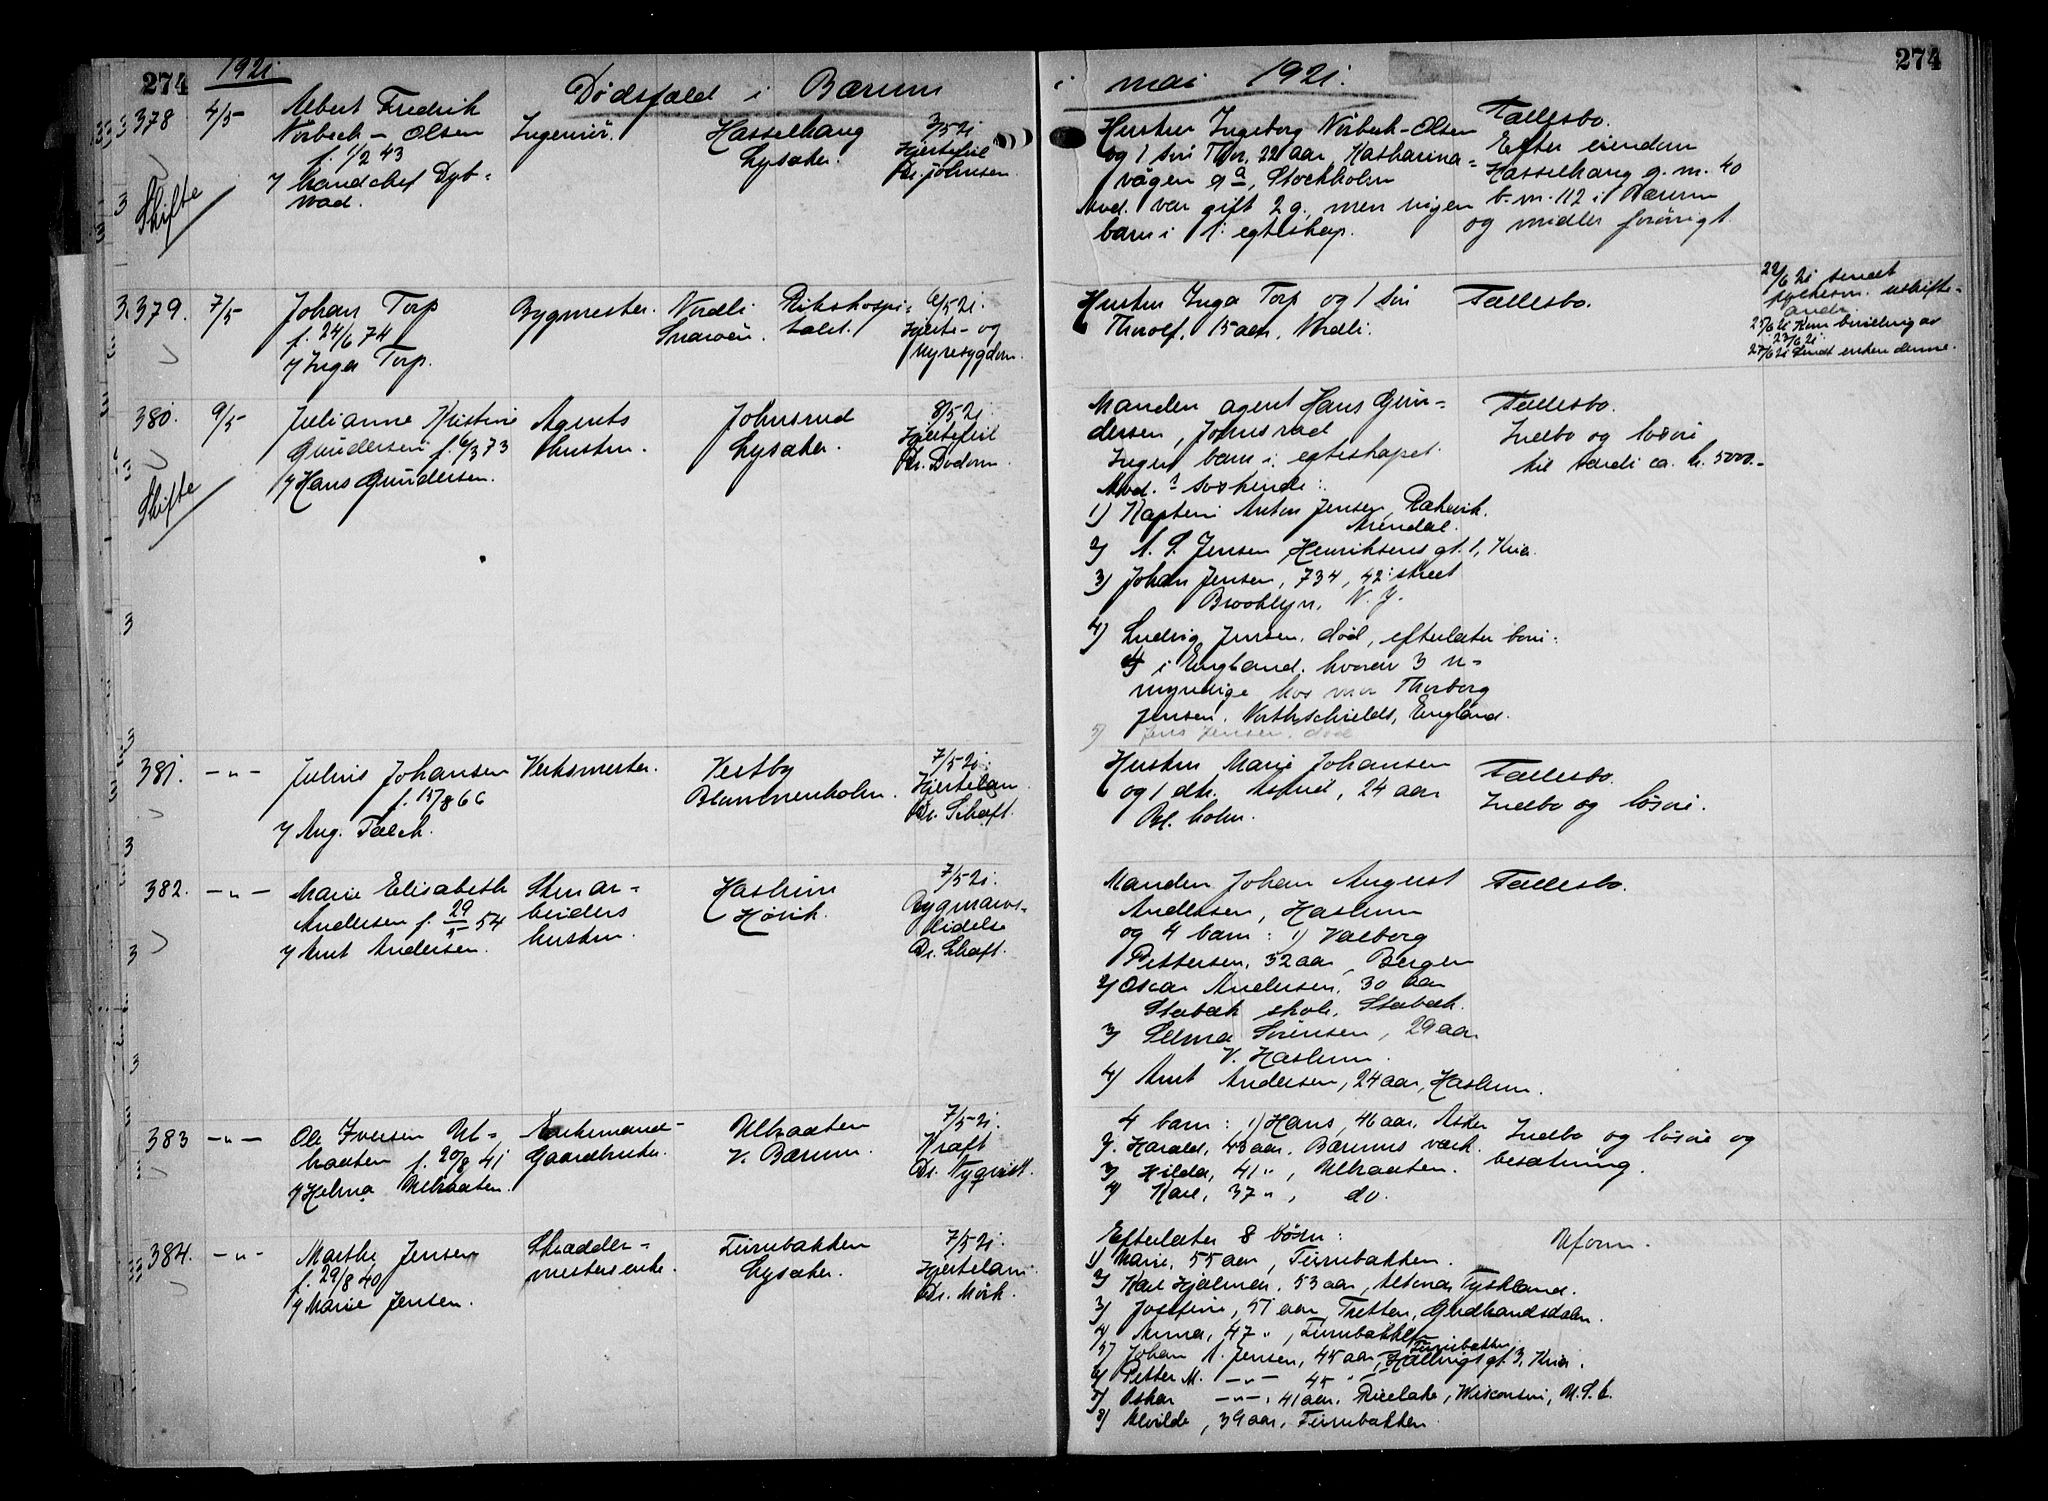 274 1921
Dødsfald i Bærum
378 4/5 Albert Fredrik
Nörbech - Olsen
f. 1/2 43
Ingeniör.
Hasselhaug
Lysaker.
3/5 21
Hjertefeil
Dr. Johnsen
Skifte
379. 7/5 Johan Torp
f. 24/6 74
v/ Inga Torp.
Bygmester.
Nordli
Snarøen.
Rikshospi-
talet.
6/5 21.
Hjerte- og
Nyresygdom.
380. 9/5 Julianne Kristine
Gundersen f. 6/3 73
v/ Hans Gundersen.
Agents
hustru.
Johnsrud
Lysaker.
8/5 21.
Hjertefeil
Skifte
381. -"- Julius Johansen
f. 15/8 66
v/ Aug. Falch.
Verksmester.
Vestby
Blommenholm.
7/5 21.
Hjertelam.
Dr. Schaft.
382. -"- Marie Elisabeth
Andersen f. 29 54
v/ Arnt Andersen.
Stenar-
beiders
hustru.
Haslum
Høvik.
7/5 21.
Rygmarvs-
lidelse
Dr. Schaft.
383 -"- Ole Iversen Ul-
braaten f. 20/8 41
v/ Helma Ulbraaten.
Gaardbruker.
Ulbraaten
V. Bærum.
7/5 21.
Kræft
Dr. Nyqvist.
384. -"- Marthe Jensen
f. 29/8 40
v/ Marie Jensen.
Skrædder-
mesterenke.
Furubakken
Lysaker.
7/5 21.
Hjertelam.
Dr. Mørk.
i mai 1921. 274
Hustru Ingeborg Nörbech-Olsen
og 1 sön Thor, 22 aar, Katharina-
vägen 9a, Stockholm
Avd. var gift 2 g., men ingen
barn i 1. egteskap.
Fællesbo.
Efter eiendom
Hasselhaug g. nr. 40
b. nr. 112 i Bærum
og midler forövrigt.
Hustru Inga Torp og 1 sön
Thorolf, 15 aar, Nordli.
Fællesbo.
Manden agent Hans Gun-
dersen, Johnsrud
Ingen barn i egteskapet.
Avd.s søskende:
1) Kaptein Anton Jensen,
Arendal.
2) A. S. Jensen Henriksens gt. 1, Kria.
3) Johan Jensen, 734, 42. street
Brooklyn, N. Y.
4) Ludvig Jensen, död, efterlater barn:
4 i England, hvorav 3 u-
myndige hos mor Thorborg
Jensen, Northschields, England.
5) Jens Jensen, död
Fællesbo.
Indbo og løsøre
til værdi ca. kr. 5000.-
Hustru Marie Johansen
og 1 dtr. Astrid, 24 aar
Bl. holm.
Fællesbo.
Indbo og løsøre.
Manden Johan August
Andersen, Haslum
og 4 barn: 1) Valborg
Pettersen, 32 aar, Bergen
2) Oscar Andersen, 30 aar
Stabæk skole, Stabæk.
3) Selma Sörensen, 29 aar
V. Haslum.
4) Arnt Andersen, 24 aar, Haslum.
Fællesbo.
4 barn: 1) Hans, 46 aar, Asker
2. Harald, 43 aar, Bærums værk.
3) Hilda, 41 ", Ulbraaten.
4) Karl, 37 ", do.
Indbo og løsøre og
besætning.
Efterlater 8 börn:
1) Marie, 55 aar, Furubakken.
2) Karl Hjalmar, 53 aar, Altona, Tyskland.
3) Josefine, 51 aar, Tretten, Gudbrandsdalen.
4) Anna, 47 ", Furubakken
5) Johan A. Jensen, 45 aar, Hallings gt. 3, Kria.
6) Petter M. -"- 45 " Furubakken
7) Oskar -"-, 41 aar, Ricelake, Wisconsin, U.S.A.
8) Alvilde, 39 aar, Furubakken
Uform.